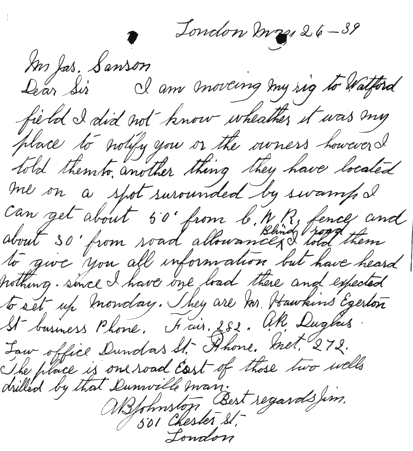 London May 26-39
Mr Jas. Sanson
Dear Sir I am moveing my rig to Watford
field I did not know wheather it was my
place to notify you or the owners however I
told them to, another thing they have located
me on a spot surounded by swamp I
can get about 50' from C. N. R, fence and
about 30' from road allowance, Blind road I told them
to give you all information but have heard
nothing. since I have one load there and expected
to set up Monday. They are Mr. Hawkins Egerton
St business Phone. Fair. 282. A.R. Duglas
Law office Dundas St. Phone. Met. 272.
The place is one road East of those two wells
drilled by that Dunnville man.
Best regards Jim.
A B Johnston
501 Chester St.
London